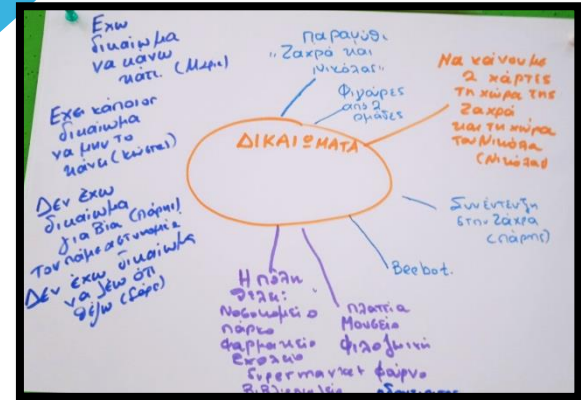 Έχω
δικαίωμα
να κάνω
κάτι. (Μαρία)
Έχει κάποιος
δικαίωμα
να μην το
κάνει (Κώστας)
Δεν έχω
δικαίωμα
για βία (Πάρης)
Τον πάμε αστυνομία
Δεν έχω δικαίωμα
να λέω ότι
θέλω
Παραμύθι
"Ζαχρά και
Νικόλας"
Φιγούρες
από 2
ομάδες
Να κάνουμε
2 χάρτες
τη χώρα της
Ζαχρά
και τη χώρα
του Νικόλα
(Νικόλας)
ΔΙΚΑΙΩΜΑΤΑ
Συνέντευξη
στην Ζάχρα
(Πάρης)
Beebot.
Η πόλη
θέλει:
Νοσοκομείο
πάρκο
Φαρμακείο
Σχολείο
Supermarket φούρνο
Βιβλιοπωλείο
πλατεία
Μουσείο
Φυλακή